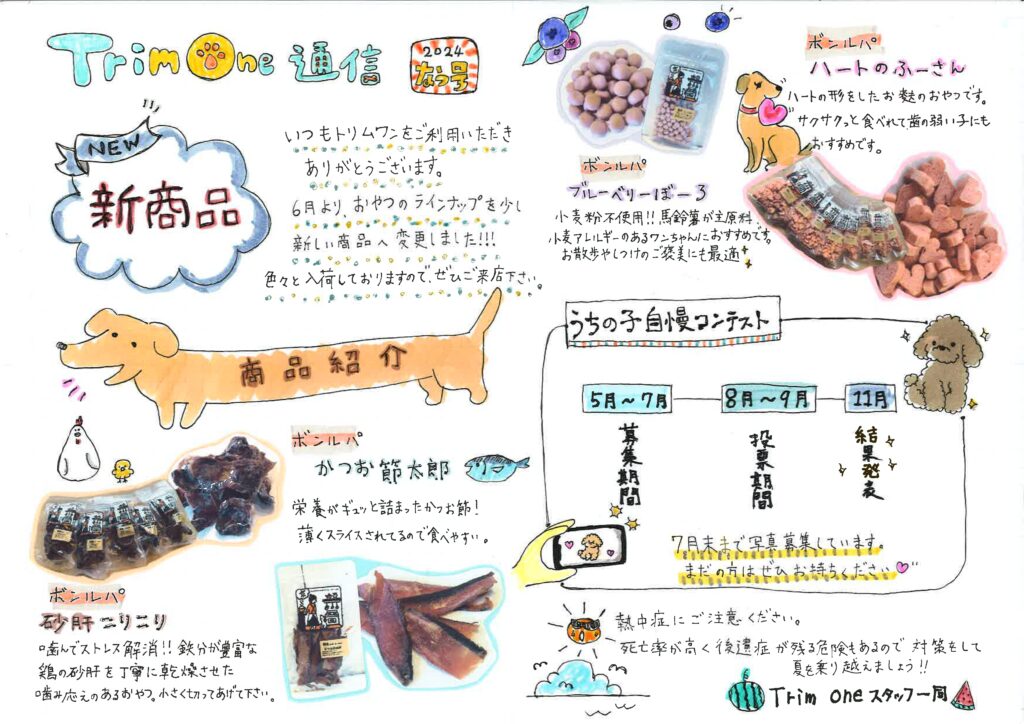 Trim One 通信
2024
なつ号
NEW
新商品
いつもトリムワンをご利用いただき
ありがとうございます。
6月より、おやつのラインナップを少し
新しい商品へ変更しました!!!
色々と入荷しておりますので、ぜひご来店下さい。
商品紹介
ボンルパ
かつお節太郎
栄養がギュッと詰まったかつお節!
薄くスライスされてるので食べやすい。
ボンルパ
砂肝こりこり
歯んでストレス解消!! 鉄分が豊富な
鶏の砂肝を丁寧に乾燥させた
歯み応えのあるおやつ。小さく切ってあげて下さい。
ボンルパ
ブルーベリーぼーろ
小麦粉不使用!! 馬鈴薯が主原料。
小麦アレルギーのあるワンちゃんにおすすめです。
お散歩やしつけのご褒美にも最適
ボンルパ
ハートのふーさん
ハートの形をしたお麩のおやつです。
サクサクっと食べれて、歯の弱い子にも
おすすめです。
うちの子自慢コンテスト
5月～7月
募集期間
8月～9月
投票期間
11月
結果発表
7月末まで写真募集しています。
まだの方はぜひお持ちください
熱中症にご注意ください。
死亡率が高く後遺症が残る危険もあるので対策をして
夏を乗り越えましょう!!
Trim one スタッフ一同